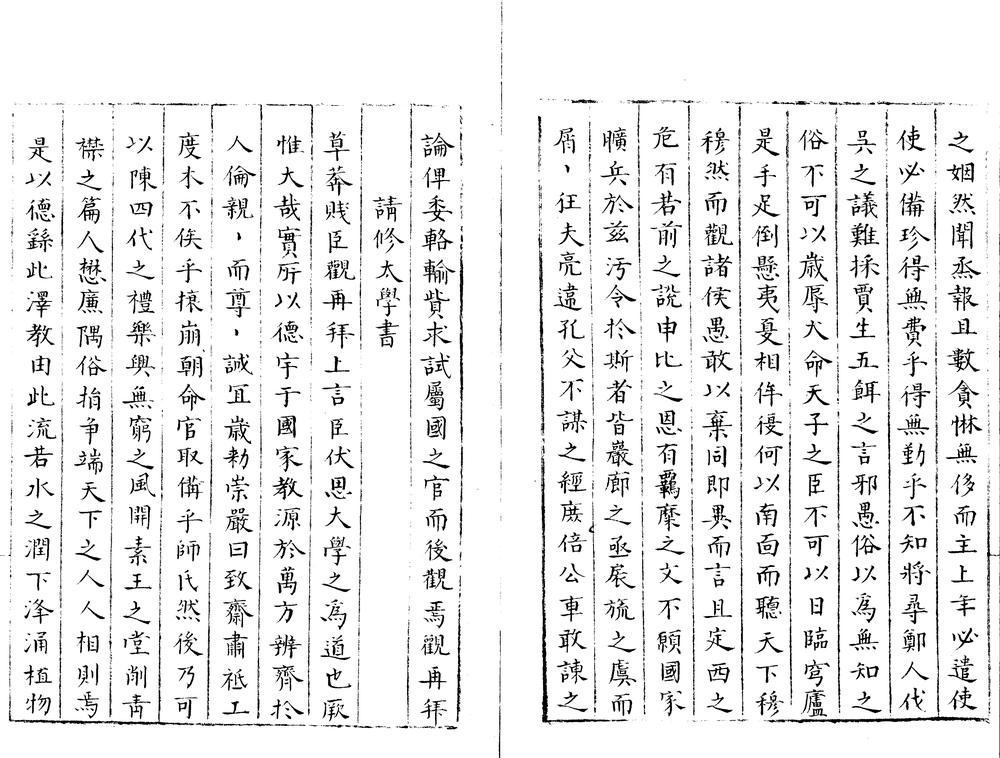 之姻然聞烝報且數貪惏無侈而主上年必遣使
使必備珍得無費乎得無動乎不知將尋鄭人伐
吳之議難採賈生五餌之言邪愚俗以爲無知之
俗不可以歲辱大命天子之臣不可以日臨穹廬
是手足倒懸夷夏相侔優何以南面而聽天下穆
穆然而觀諸侯愚敢以棄同即異而言且定西之
危有若前之說申比之恩有羈縻之文不願國家
曠兵於兹汚令於斯者皆巖廊之亟扆旒之虞而
屑屑狂夫亮違孔父不謀之經庶倍公車敢諫之
論俾委輅輸貲求試屬國之官而後觀焉觀再拜
請修太學書
草莽賤臣觀再拜上言臣伏思大學之爲道也厥
惟大哉實所以德宇于國家教源於萬方辨齊於
人倫親親而尊尊誠宜歲勑崇嚴曰致齋肅祗工
度木不俟乎攘崩朝命官取備乎師氏然後乃可
以陳四代之禮樂興無窮之風開素王之堂削青
襟之篇人懋廉隅俗捐争端天下之人人相則焉
是以德繇此澤教由此流若水之潤下洚涌植物